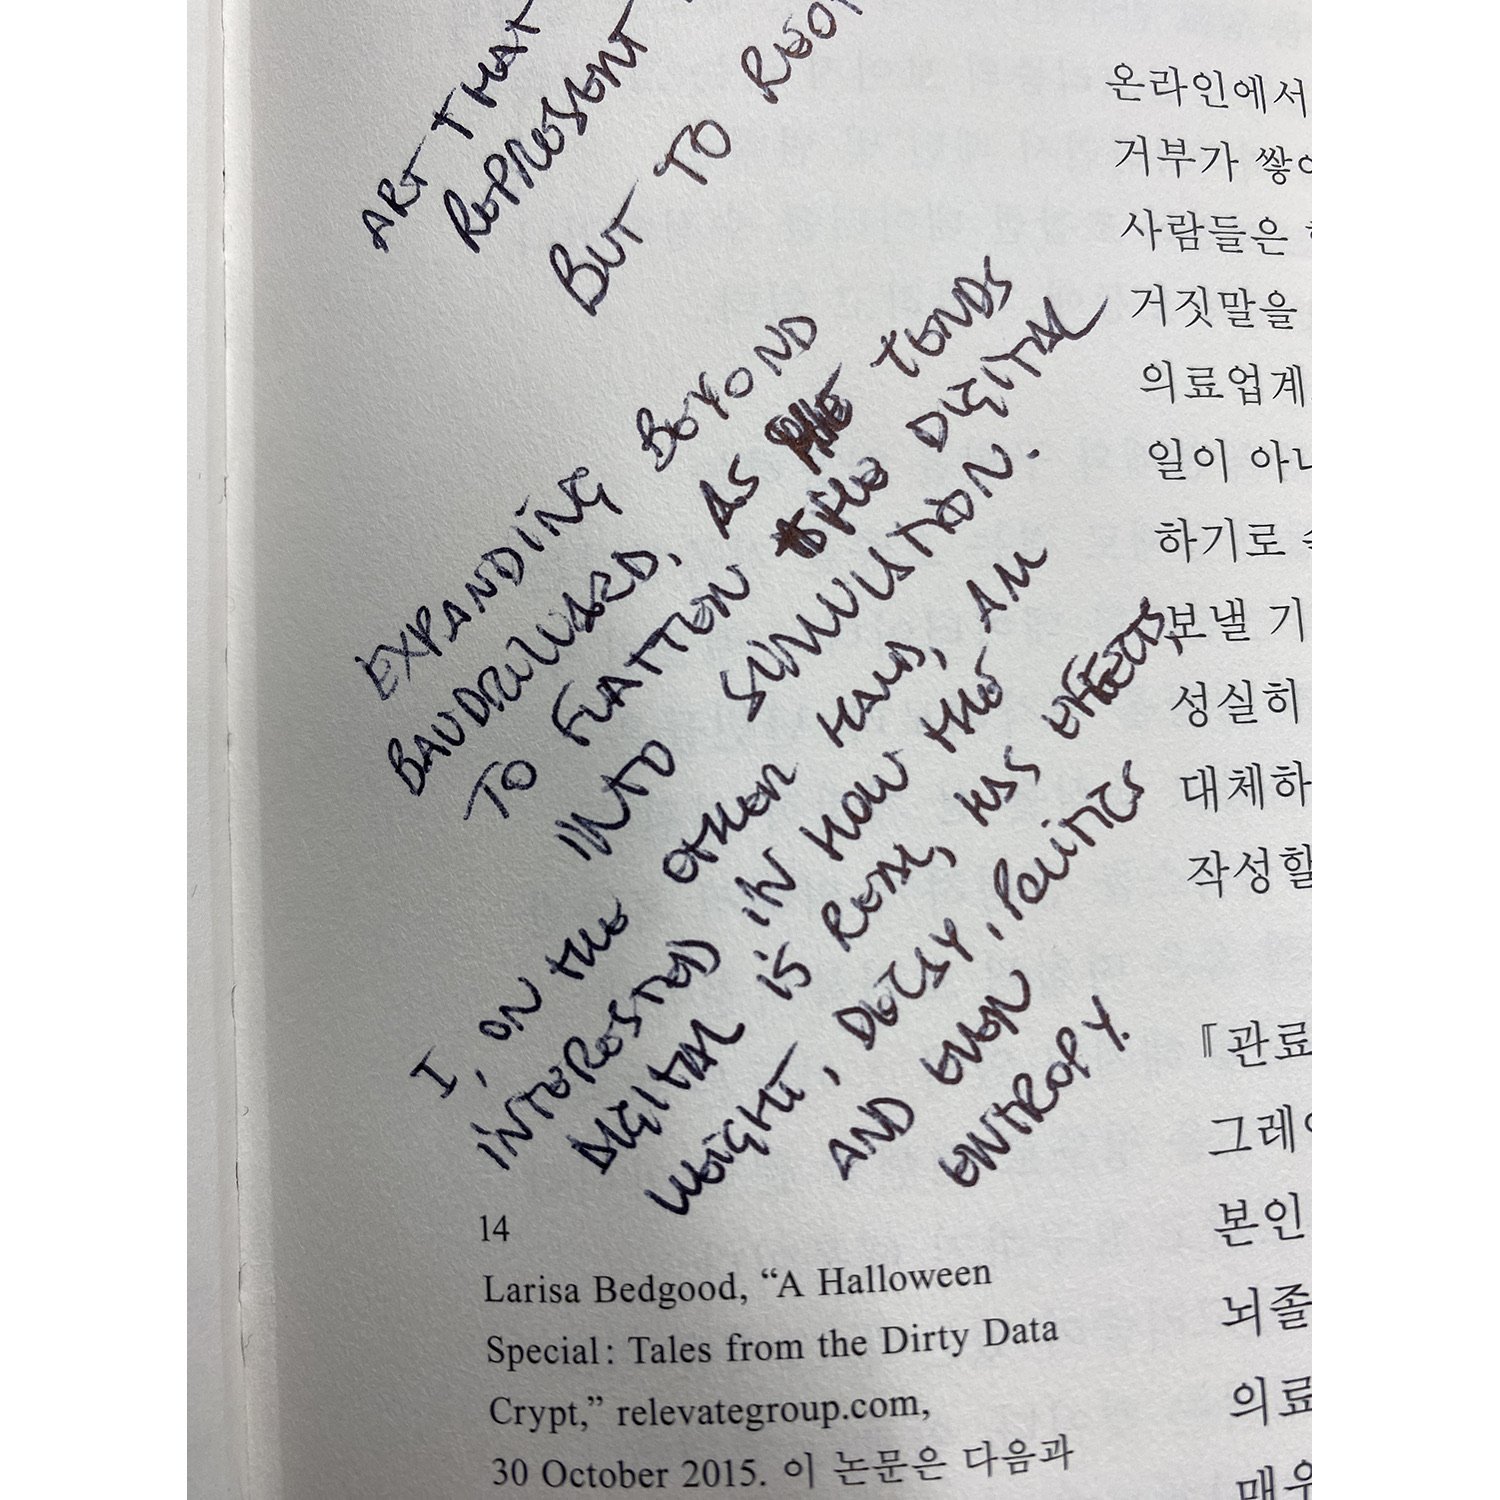 ART THAT
REPRESENT
BUT TO
EXPANDING BEYOND
BAUDRILLARD, AS HE TENDS
TO FLATTEN THE DIGITAL
INTO SIMULATION.
I, ON THE OTHER HAND, AM
INTERESTED IN HOW THE
DIGITAL IS REAL, HAS EFFECTS,
WEIGHT, DECAY, POLITICS
AND EVEN
ENTROPY.
14
Larisa Bedgood, “A Halloween
Special: Tales from the Dirty Data
Crypt,” relevategroup.com,
30 October 2015. 이 논문은 다음과
온라인에서
거부가
사람들은
거짓말을
의료업계
일이
하기로
보낼
성실히
대체하
작성할
『관료
본인
의료